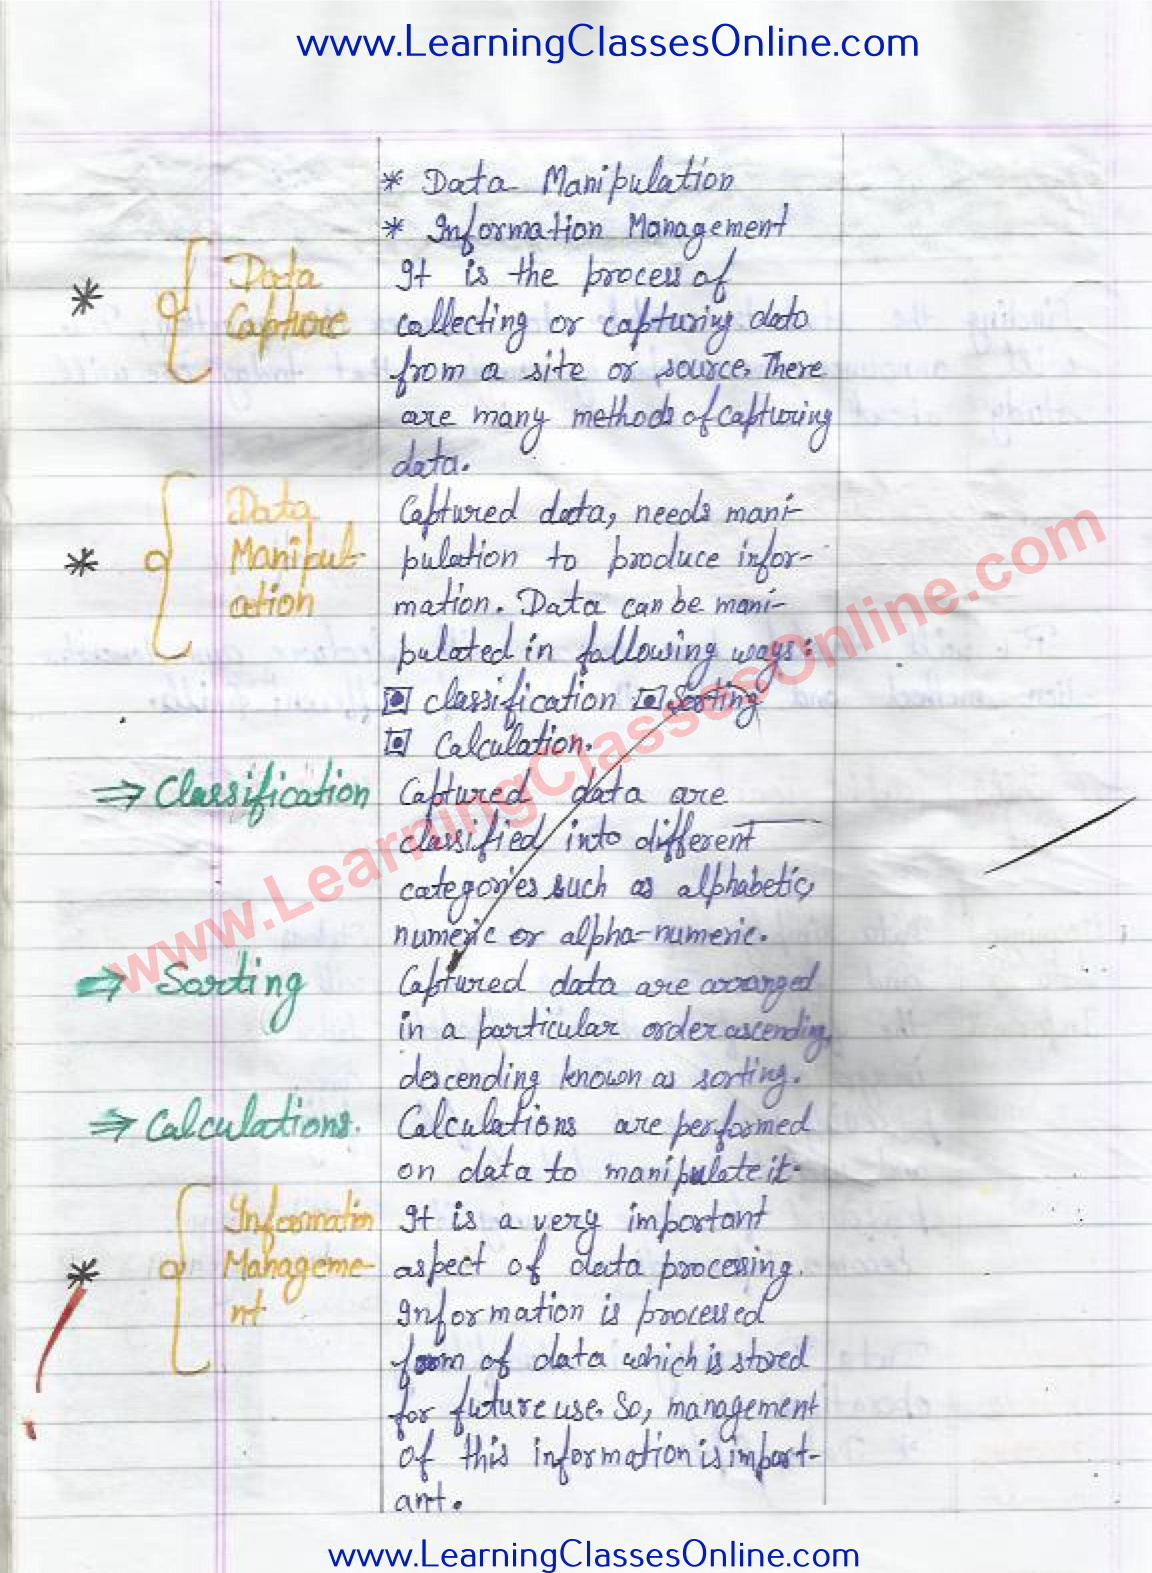 www.LearningClassesOnline.com
* Data Manipulation
* Information Management
* Data Capture
It is the process of
collecting or capturing data
from a site or source. There
are many methods of capturing
data.
* Data Manipul-ation
Captured data, needs mani-
pulation to produce infor-
mation. Data can be mani-
pulated in following ways:
classification Sorting
Calculation.
⇒ Classification
Captured data are
classified into different
categories such as alphabetic,
numeric or alpha-numeric.
⇒ Sorting
Captured data are arranged
in a particular order ascending,
descending known as sorting.
⇒ Calculations.
Calculations are performed
on data to manipulate it.
* Information Manageme-nt
It is a very important
aspect of data processing.
Information is processed
form of data which is stored
for future use. So, management
of this information is import-
ant.
www.LearningClassesOnline.com
www.LearningClassesOnline.com